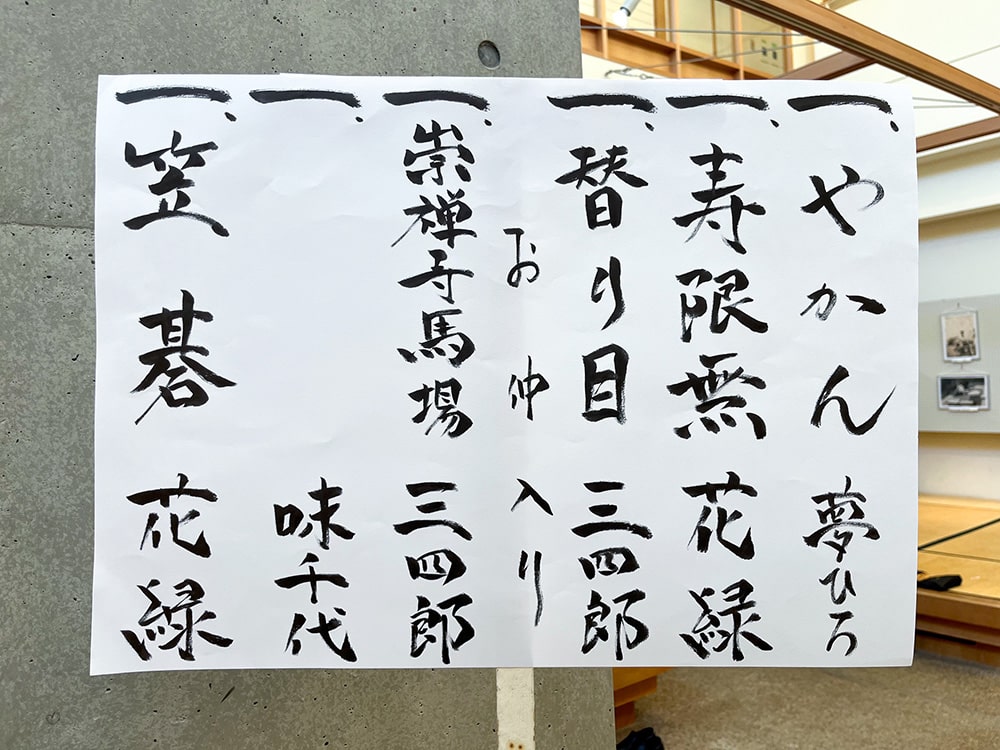 一、やかん 夢ひろ
一、寿限無 花緑
一、替り目 三四郎
お仲入り
一、崇禅寺馬場 三四郎
一、 味千代
一、笠碁 花緑